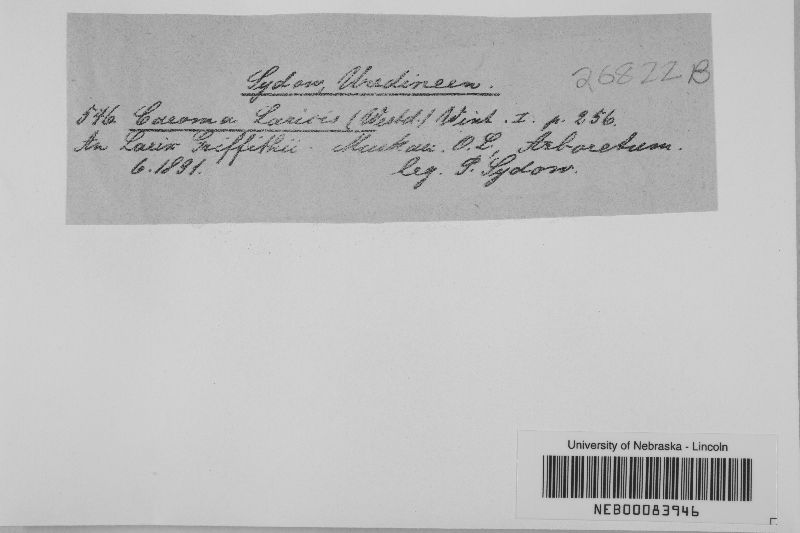 Sydow, Uredineen.
26822 B
546. Caeoma Laricis (Westd.) Wint. I. p. 256.
An Larix Griffithii. Muskau O.L., Arboretum.
6.1891. leg. P. Sydow.
University of Nebraska - Lincoln
NEB00083946